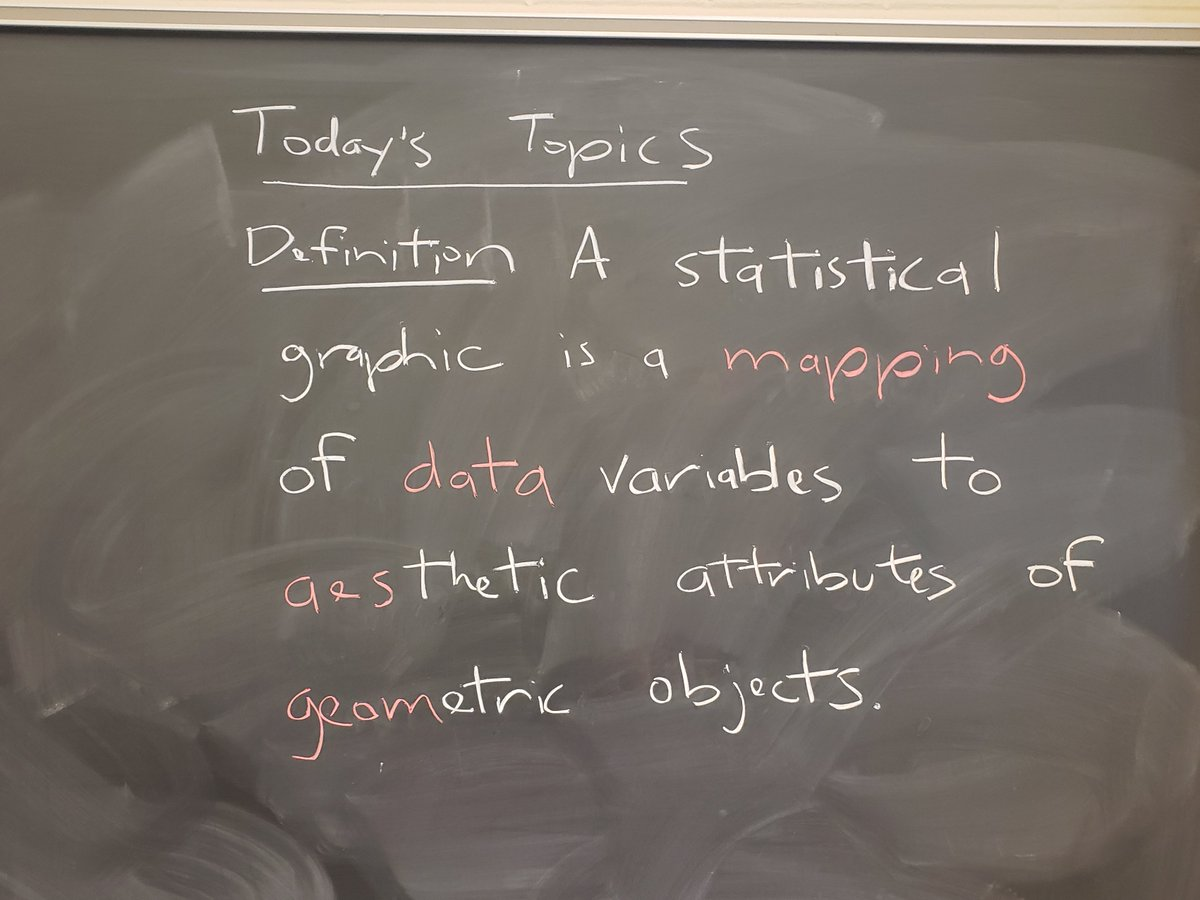 Today's Topics
Definition A statistical
graphic is a mapping
of data variables to
aesthetic attributes of
geometric objects.